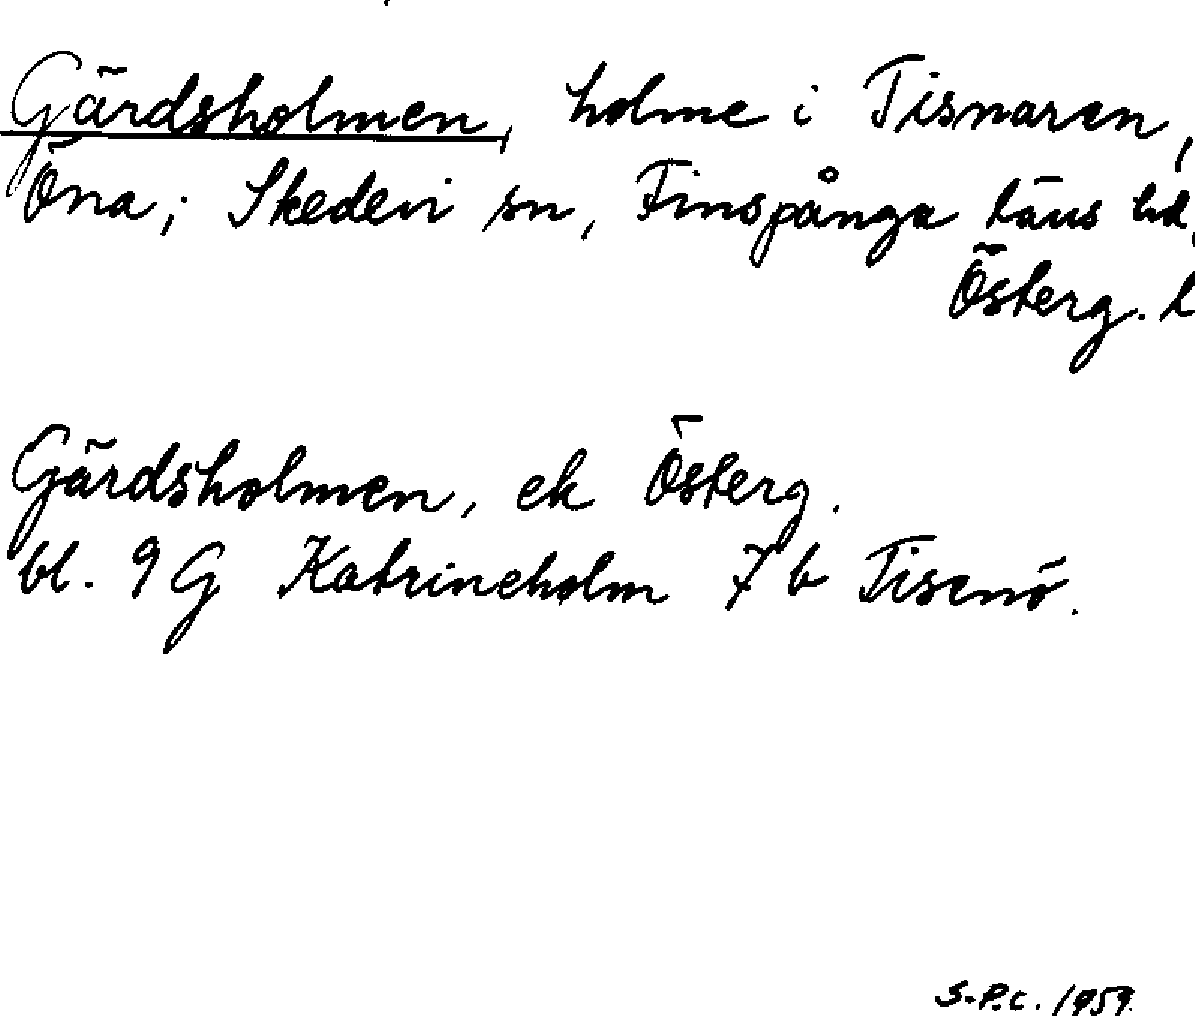 Gärdsholmen, holme i Tisnaren,
Öna; Skedevi sn, Finspånga läns hd,
Österg. l
Gärdsholmen, ek Österg.
bl. 9 G Katrineholm 7 b Tisenö.
S.P.C. 1959.